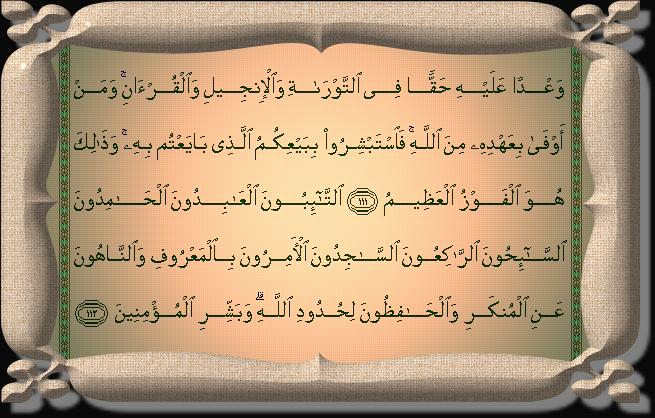 وَعۡدًا عَلَيۡهِ حَقّٗا فِي ٱلتَّوۡرَىٰةِ وَٱلۡإِنجِيلِ وَٱلۡقُرۡءَانِۚ وَمَنۡ
أَوۡفَىٰ بِعَهۡدِهِۦ مِنَ ٱللَّهِۚ فَٱسۡتَبۡشِرُواْ بِبَيۡعِكُمُ ٱلَّذِي بَايَعۡتُم بِهِۦۚ وَذَٰلِكَ
هُوَ ٱلۡفَوۡزُ ٱلۡعَظِيمُ ١١١ ٱلتَّـٰٓئِبُونَ ٱلۡعَـٰبِدُونَ ٱلۡحَـٰمِدُونَ
ٱلسَّـٰٓئِحُونَ ٱلرَّٰكِعُونَ ٱلسَّـٰجِدُونَ ٱلۡأٓمِرُونَ بِٱلۡمَعۡرُوفِ وَٱلنَّاهُونَ
عَنِ ٱلۡمُنكَرِ وَٱلۡحَـٰفِظُونَ لِحُدُودِ ٱللَّهِۗ وَبَشِّرِ ٱلۡمُؤۡمِنِينَ ١١٢